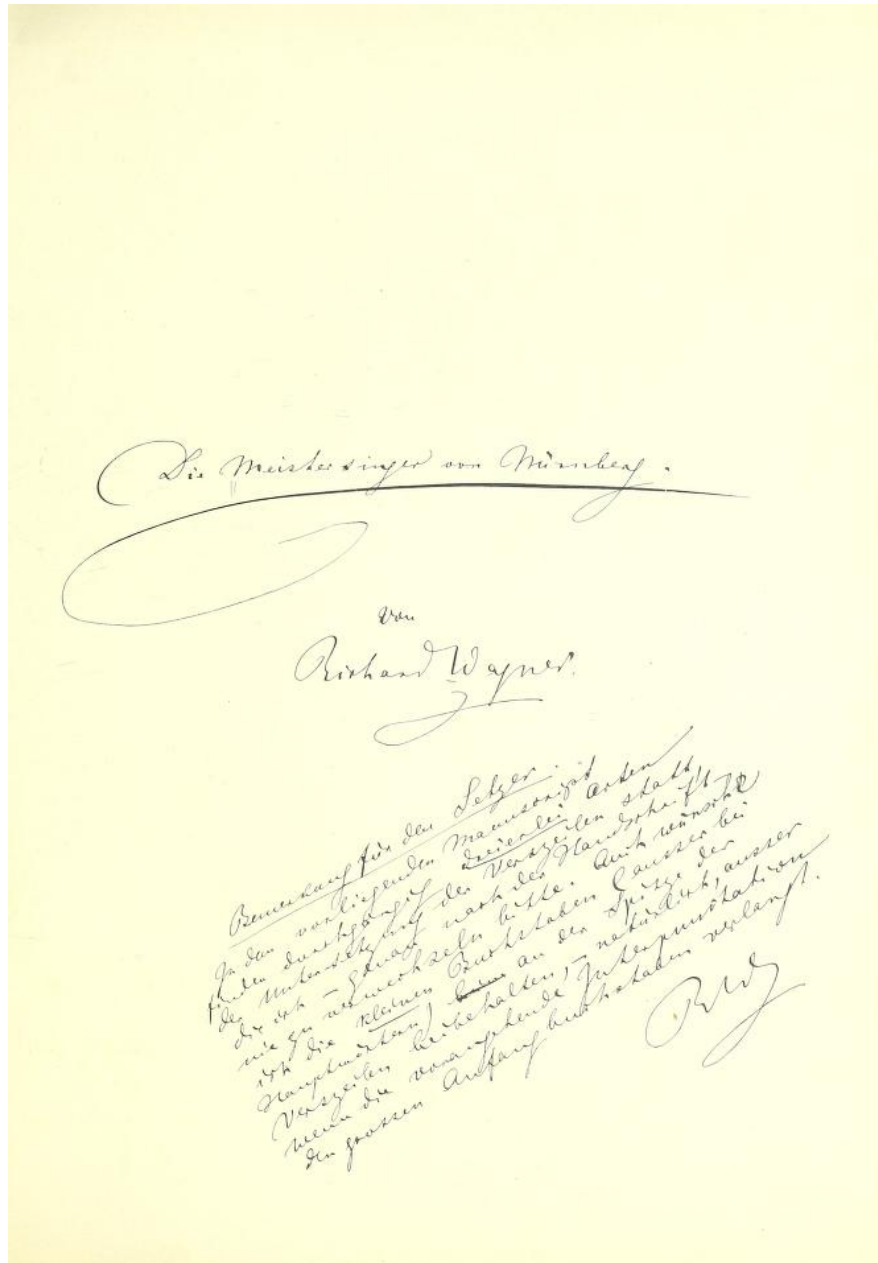 Die Meistersinger von Nürnberg.
von
Richard Wagner.
Bemerkung für den Setzer.
In dem vorliegenden Manuscript
finden durchgängig dreierlei Arten
der Untersetzung der Verszeilen statt,
die ich – genau nach der Handschrift –
nie zu verwechseln bitte. Auch wünschte
ich die kleinen Buchstaben (ausser bei
Hauptwörtern) an der Spitze der
Verszeilen beibehalten, – natürlich, ausser
wenn die vorangehende Interpunktation
den grossen Anfangbuchstaben verlangt.
RW